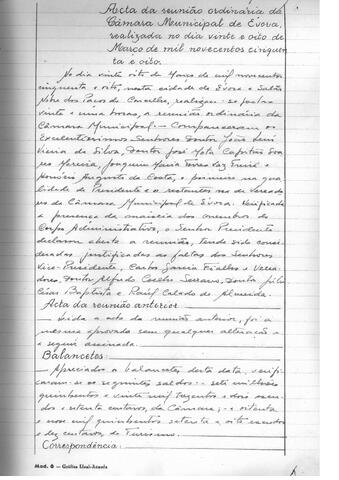 Acta da reunião ordinária da
Câmara Municipal de Évora,
realizada no dia vinte e oito de
Março de mil novecentos cinquen
ta e oito.
No dia vinte oito de Março de mil novecentos
cinquenta e oito, nesta cidade de Évora e Salão
Nobre dos Paços do Concelho, realizou-se pelas
vinte e uma horas, a reunião ordinária da
Câmara Municipal. — Compareceram os
Excelentíssimos Senhores Doutor João Luís
Vieira da Silva, Doutor José Mota Capitão
Moreira, Joaquim Maria
Augusto da Costa, o primeiro na qua
lidade de Presidente e os restantes na de Vereado
res da Câmara Municipal de Évora. Verificada
a presença da maioria dos membros do
Corpo Administrativo, o Senhor Presidente
declarou aberta a reunião, tendo sido consi
deradas justificadas as faltas dos Senhores
Vice-Presidente, Carlos Garcia Fialho e Verea
dores, Doutor Alfredo Coelho Serrano, Doutor
César Baptista e Raúl Calado de Almeida.
Acta da reunião anterior
— Lida a acta da reunião anterior, foi a
mesma aprovada sem qualquer alteração e
a seguir assinada.
Balancetes:
— Apreciados os balancetes desta data, verifi
caram-se os seguintes saldos: — sete milhões
quinhentos e vinte mil trezentos e dois escu
dos e setenta centavos, da Câmara; — e oitenta
e nove mil quinhentos setenta e oito escudos
e dez centavos, do Turismo.
Correspondência:
Mod. 6 — Gráfica Eborense